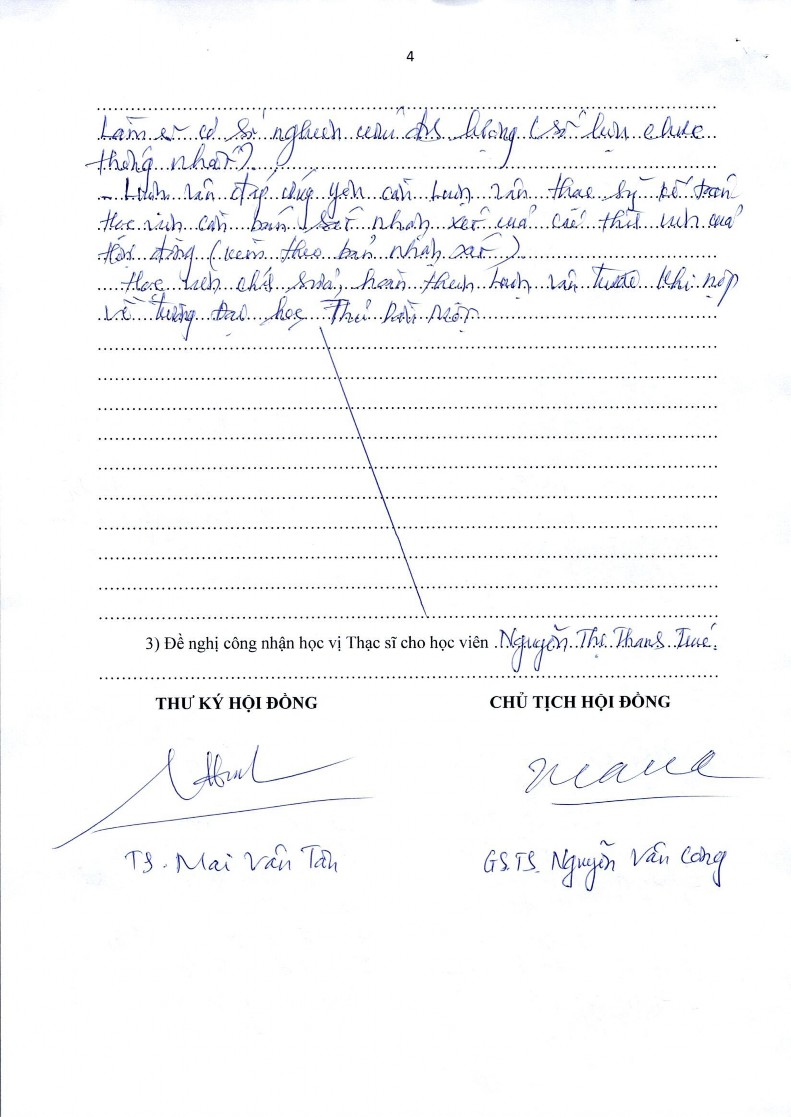 4
Làm cơ sở nghiên cứu định lượng (số liệu chưa
thống nhất).
- Luận văn đáp ứng yêu cầu Luận văn thạc sỹ kế toán
Học viên cần bám sát nhận xét của các thành viên của
Hội đồng (kèm theo bản nhận xét)
Học viên chỉnh sửa, hoàn thiện Luận văn trước khi nộp
về trường Đại học Thủ Dầu Một
3) Đề nghị công nhận học vị Thạc sĩ cho học viên Nguyễn Thị Thanh
THƯ KÝ HỘI ĐỒNG CHỦ TỊCH HỘI ĐỒNG
TS. Mai Văn Tân GS.TS. Nguyễn Văn Công